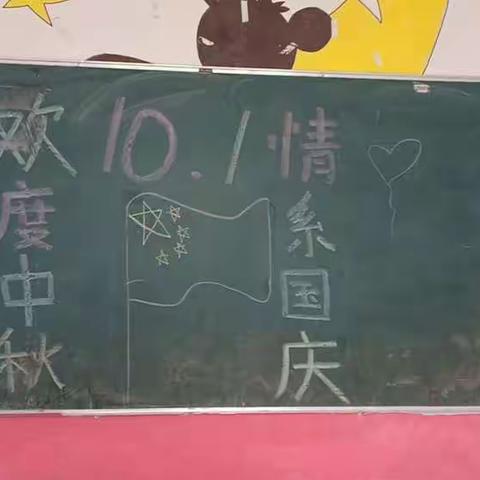 欢度中秋
10.1
情系国庆